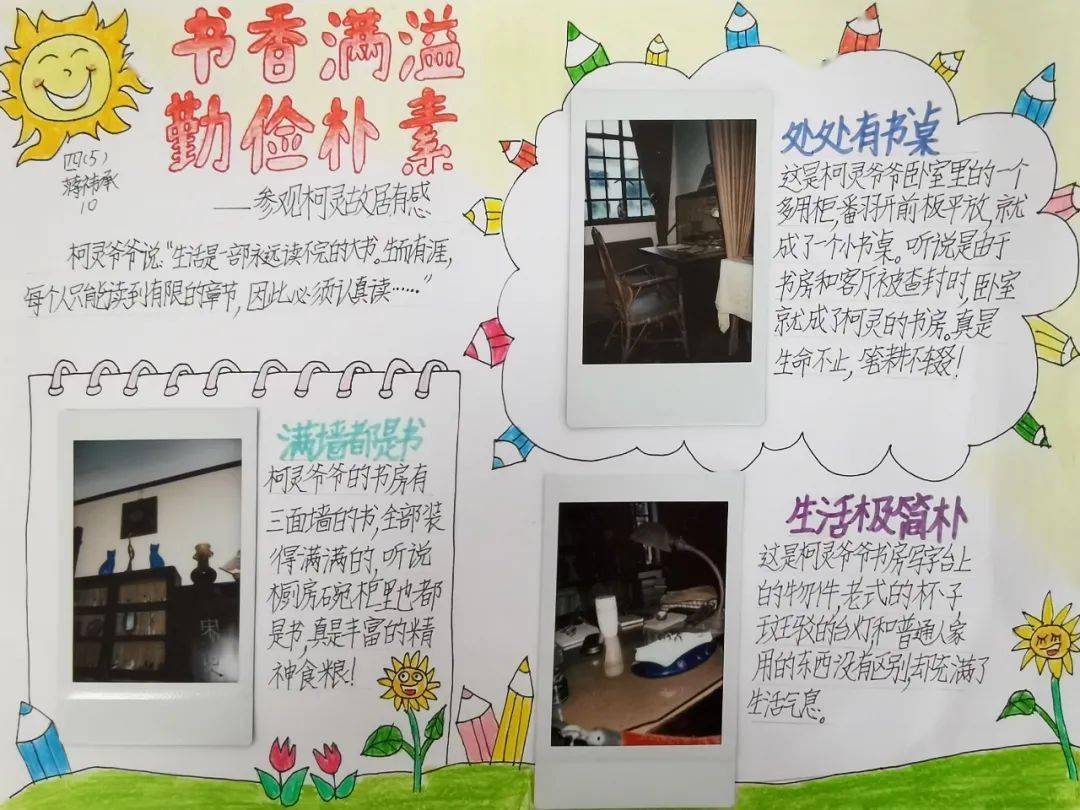 书香满溢
勤俭朴素
四(5)
蒋祎承
10
——参观柯灵故居有感
柯灵爷爷说:“生活是一部永远读不完的大书。生而有涯,
每个人只能读到有限的章节,因此必须认真读……”
处处有书桌
这是柯灵爷爷卧室里的一个
多用柜,翻开前板平放,就
成了一个小书桌。听说是由于
书房和客厅被查封时,卧室
就成了柯灵的书房。真是
生命不止,笔耕不辍!
满墙都是书
柯灵爷爷的书房有
三面墙的书,全部装
得满满的,听说
橱房碗柜里也都
是书,真是丰富的精
神食粮!
宋
生活极简朴
这是柯灵爷爷书房写字台上
的物件,老式的杯子
斑驳的台灯和普通人家
用的东西没有区别,却充满了
生活气息。